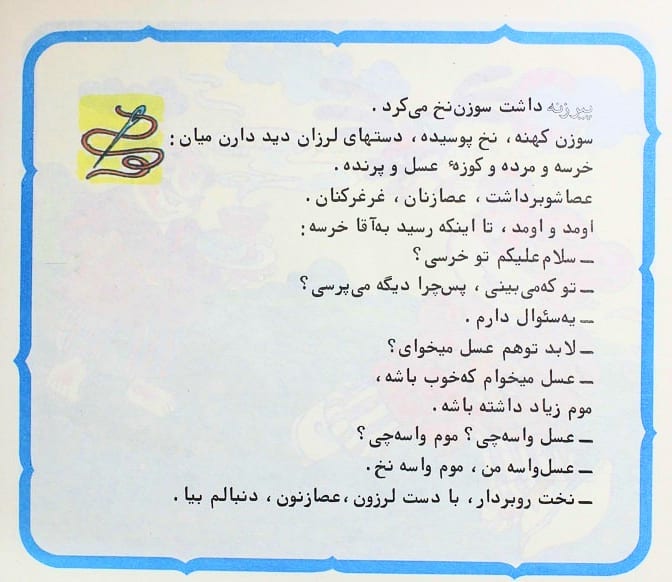 پیرزنه داشت سوزن‌نخ می‌کرد .
سوزن کهنه ، نخ پوسیده ، دستهای لرزان دید دارن میان :
خرسه و مرده و کوزهٔ عسل و پرنده .
عصاشوبرداشت ، عصازنان ، غرغرکنان .
اومد و اومد ، تا اینکه رسید به‌آقا خرسه :
ــ سلام‌علیکم تو خرسی ؟
ــ تو که‌می‌بینی ، پس‌چرا دیگه می‌پرسی ؟
ــ یه‌سئوال دارم .
ــ لابد توهم عسل میخوای ؟
ــ عسل میخوام که‌خوب باشه ،
موم زیاد داشته باشه .
ــ عسل واسه‌چی ؟ موم واسه‌چی ؟
ــ عسل‌واسه من ، موم واسه نخ .
ــ نخت روبردار ، با دست لرزون ، عصازنون ، دنبالم بیا .